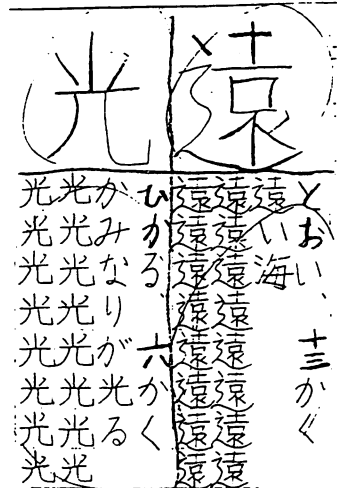 遠
とおい、十三かく
遠い海
遠遠遠遠遠遠遠遠
遠遠遠遠遠遠遠遠
光
ひかる 六かく
かみなりが光る
光光光光光光光光
光光光光光光光光